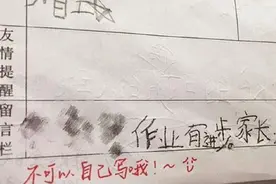 友情提醒留言栏
作业有进步 家长
不可以自己写哦！～